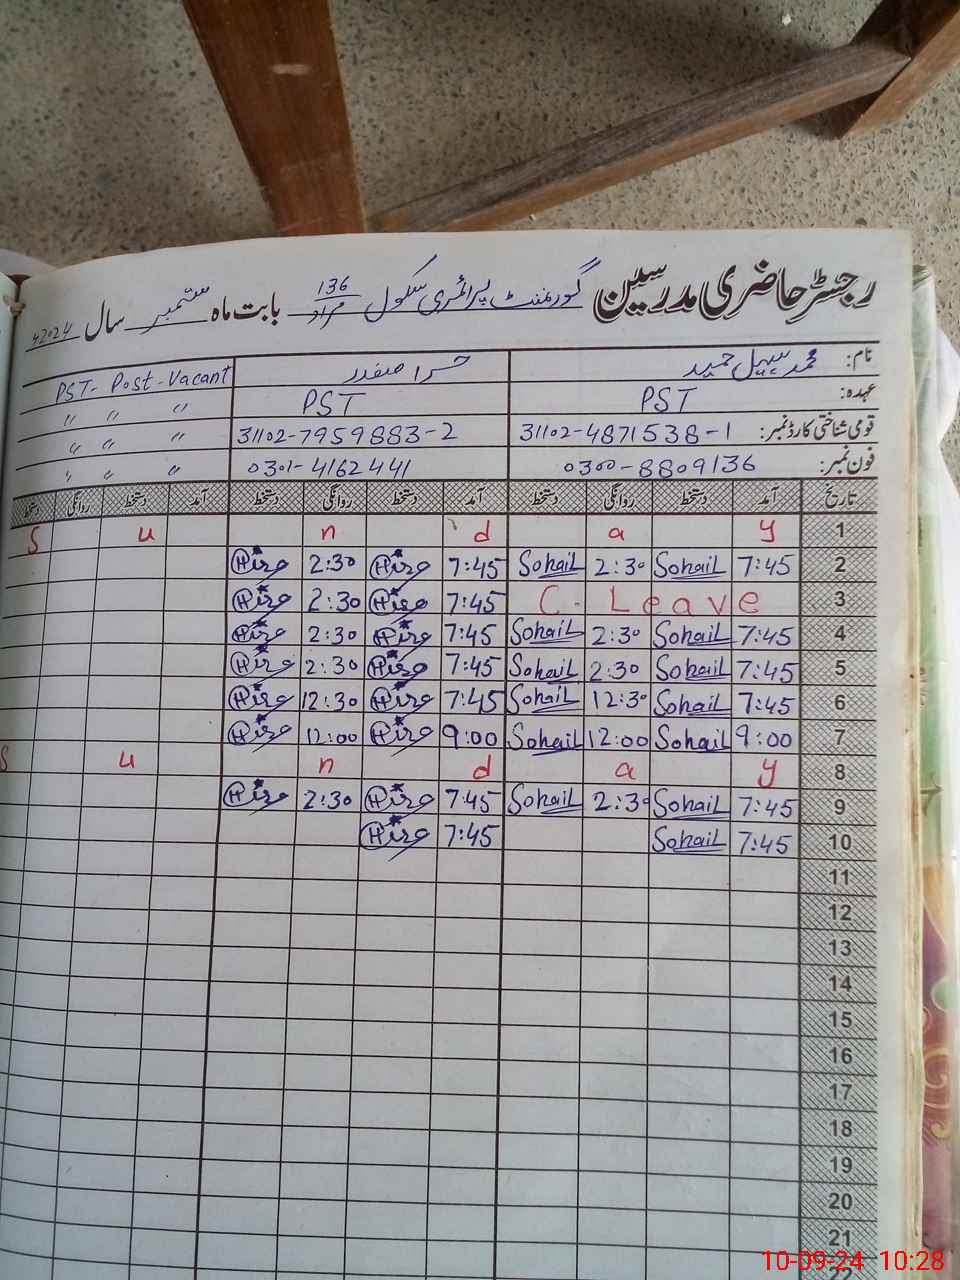 رجسٹر حاضری مدرسین گورنمنٹ پرائمری سکول 136 مراد بابت ماہ ستمبر سال 2024ء
نام: محمد سہیل حمید حرا صفدر PST- Post-Vacant
عہدہ: PST PST " " "
قومی شناختی کارڈ نمبر: 31102-4871538-1 31102-7959883-2 " " "
فون نمبر: 0300-8809136 0301-4162441 " " "
تاریخ آمد دستخط روانگی دستخط آمد دستخط روانگی دستخط آمد دستخط روانگی دستخط
1 S u n d a y
2 7:45 Sohail 2:30 Sohail 7:45 Hira 2:30 Hira
3 C- Leave 7:45 Hira 2:30 Hira
4 7:45 Sohail 2:30 Sohail 7:45 Hira 2:30 Hira
5 7:45 Sohail 2:30 Sohail 7:45 Hira 2:30 Hira
6 7:45 Sohail 12:30 Sohail 7:45 Hira 12:30 Hira
7 9:00 Sohail 12:00 Sohail 9:00 Hira 12:00 Hira
8 S u n d a y
9 7:45 Sohail 2:30 Sohail 7:45 Hira 2:30 Hira
10 7:45 Sohail 7:45 Hira
11
12
13
14
15
16
17
18
19
20
21
22
10-09-24 10:28